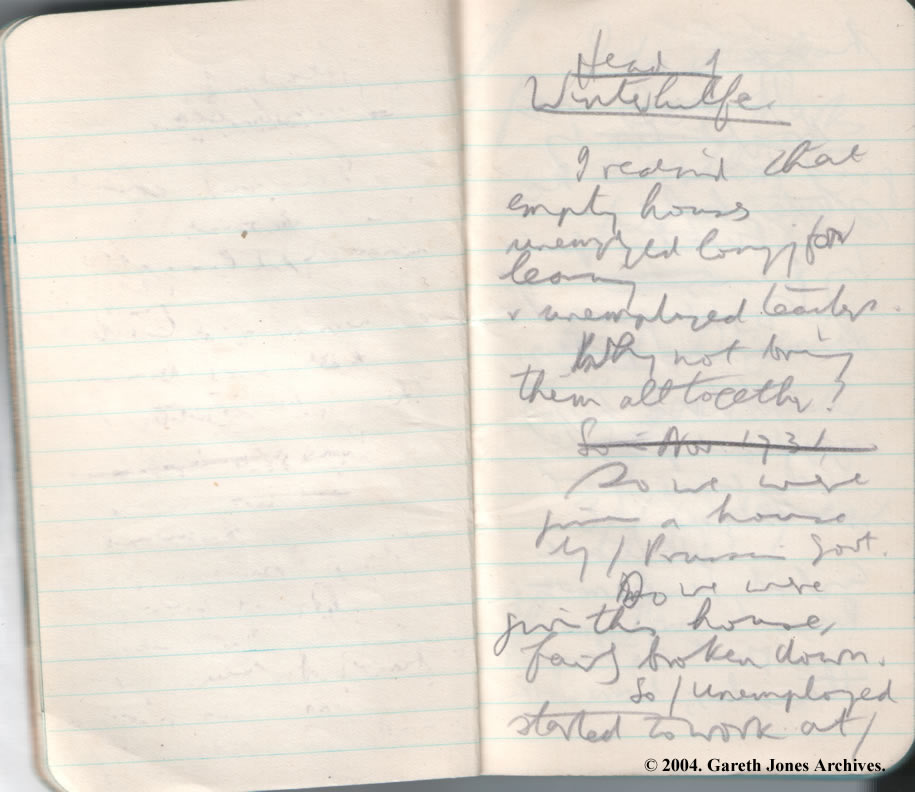 Head of
Winterhilfe.
I realised that
empty houses
unemployed longing for
learning
& unemployed teachers.
Why not bring
them all together?
So in Nov 1931
So we were
given a house
by / Prussian Govt.
So we were
given this house,
fairly broken down.
So / unemployed
started to work at /
© 2004. Gareth Jones Archives.